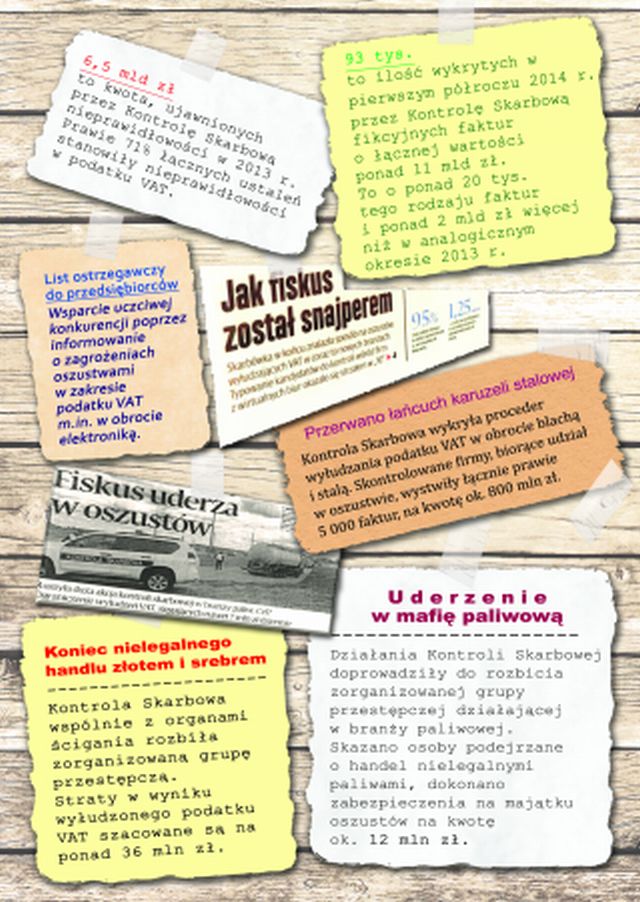 6,5 mld zł
to kwota, ujawnionych
przez Kontrolę Skarbową
nieprawidłowości w 2013 r.
Prawie 71% łącznych ustaleń
stanowiły nieprawidłowości
w podatku VAT.
93 tys.
to ilość wykrytych w
pierwszym półroczu 2014 r.
przez Kontrolę Skarbową
fikcyjnych faktur
o łącznej wartości
ponad 11 mld zł.
To o ponad 20 tys.
tego rodzaju faktur
i ponad 2 mld zł więcej
niż w analogicznym
okresie 2013 r.
List ostrzegawczy
do przedsiębiorców
Wsparcie uczciwej
konkurencji poprzez
informowanie
o zagrożeniach
oszustwami
w zakresie
podatku VAT
m.in. w obrocie
elektroniką.
Jak fiskus
został snajperem
95% 1,25
Przerwano łańcuch karuzeli stalowej
Kontrola Skarbowa wykryła proceder
wyłudzania podatku VAT w obrocie blachą
i stalą. Skontrolowane firmy, biorące udział
w oszustwie, wystwiły łącznie prawie
5 000 faktur, na kwotę ok. 800 mln zł.
Fiskus uderza
w oszustów
Koniec nielegalnego
handlu złotem i srebrem
Kontrola Skarbowa
wspólnie z organami
ścigania rozbiła
zorganizowaną grupę
przestępczą.
Straty w wyniku
wyłudzonego podatku
VAT szacowane są na
ponad 36 mln zł.
Uderzenie
w mafię paliwową
Działania Kontroli Skarbowej
doprowadziły do rozbicia
zorganizowanej grupy
przestępczej działającej
w branży paliwowej.
Skazano osoby podejrzane
o handel nielegalnymi
paliwami, dokonano
zabezpieczenia na majątku
oszustów na kwotę
ok. 12 mln zł.